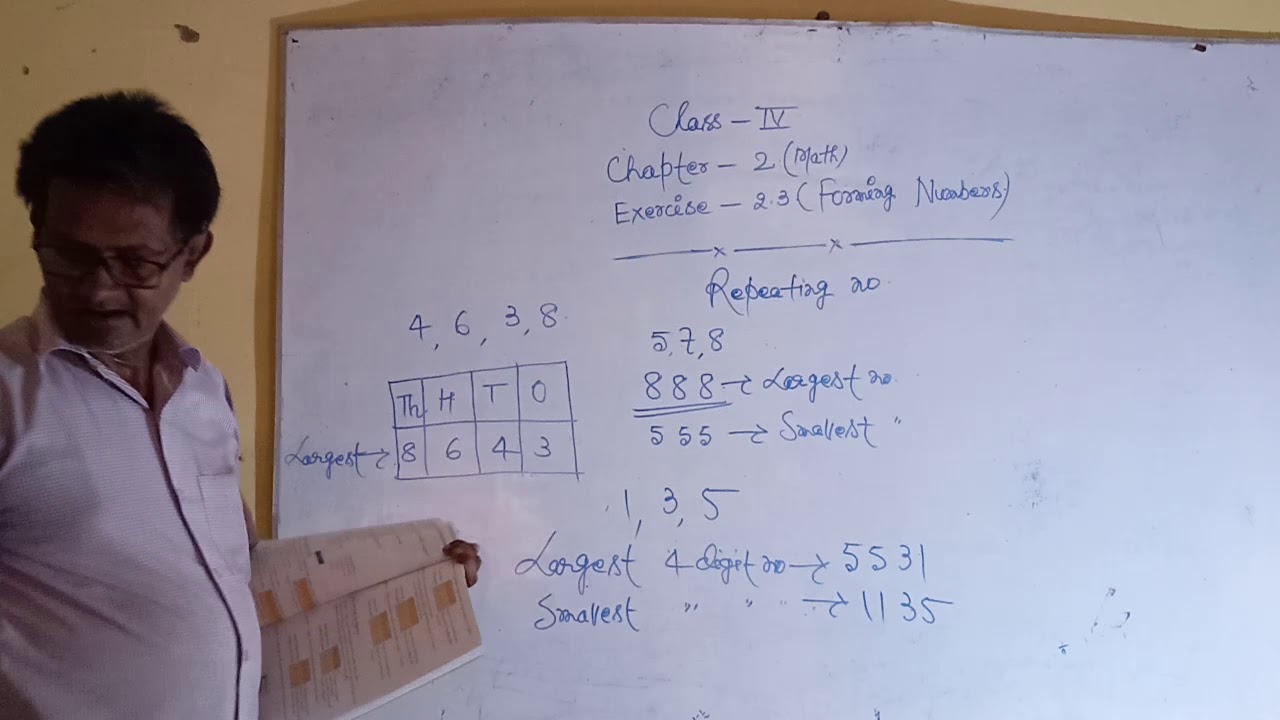 Class - IV
Chapter - 2 (Math)
Exercise - 2.3 (Forming Numbers)
Repeating no
4, 6, 3, 8
Th H T O
Largest → 8 6 4 3
5, 7, 8
888 → Largest no.
555 → Smallest "
1, 3, 5
Largest 4 digit no → 5531
Smallest " " " → 1135